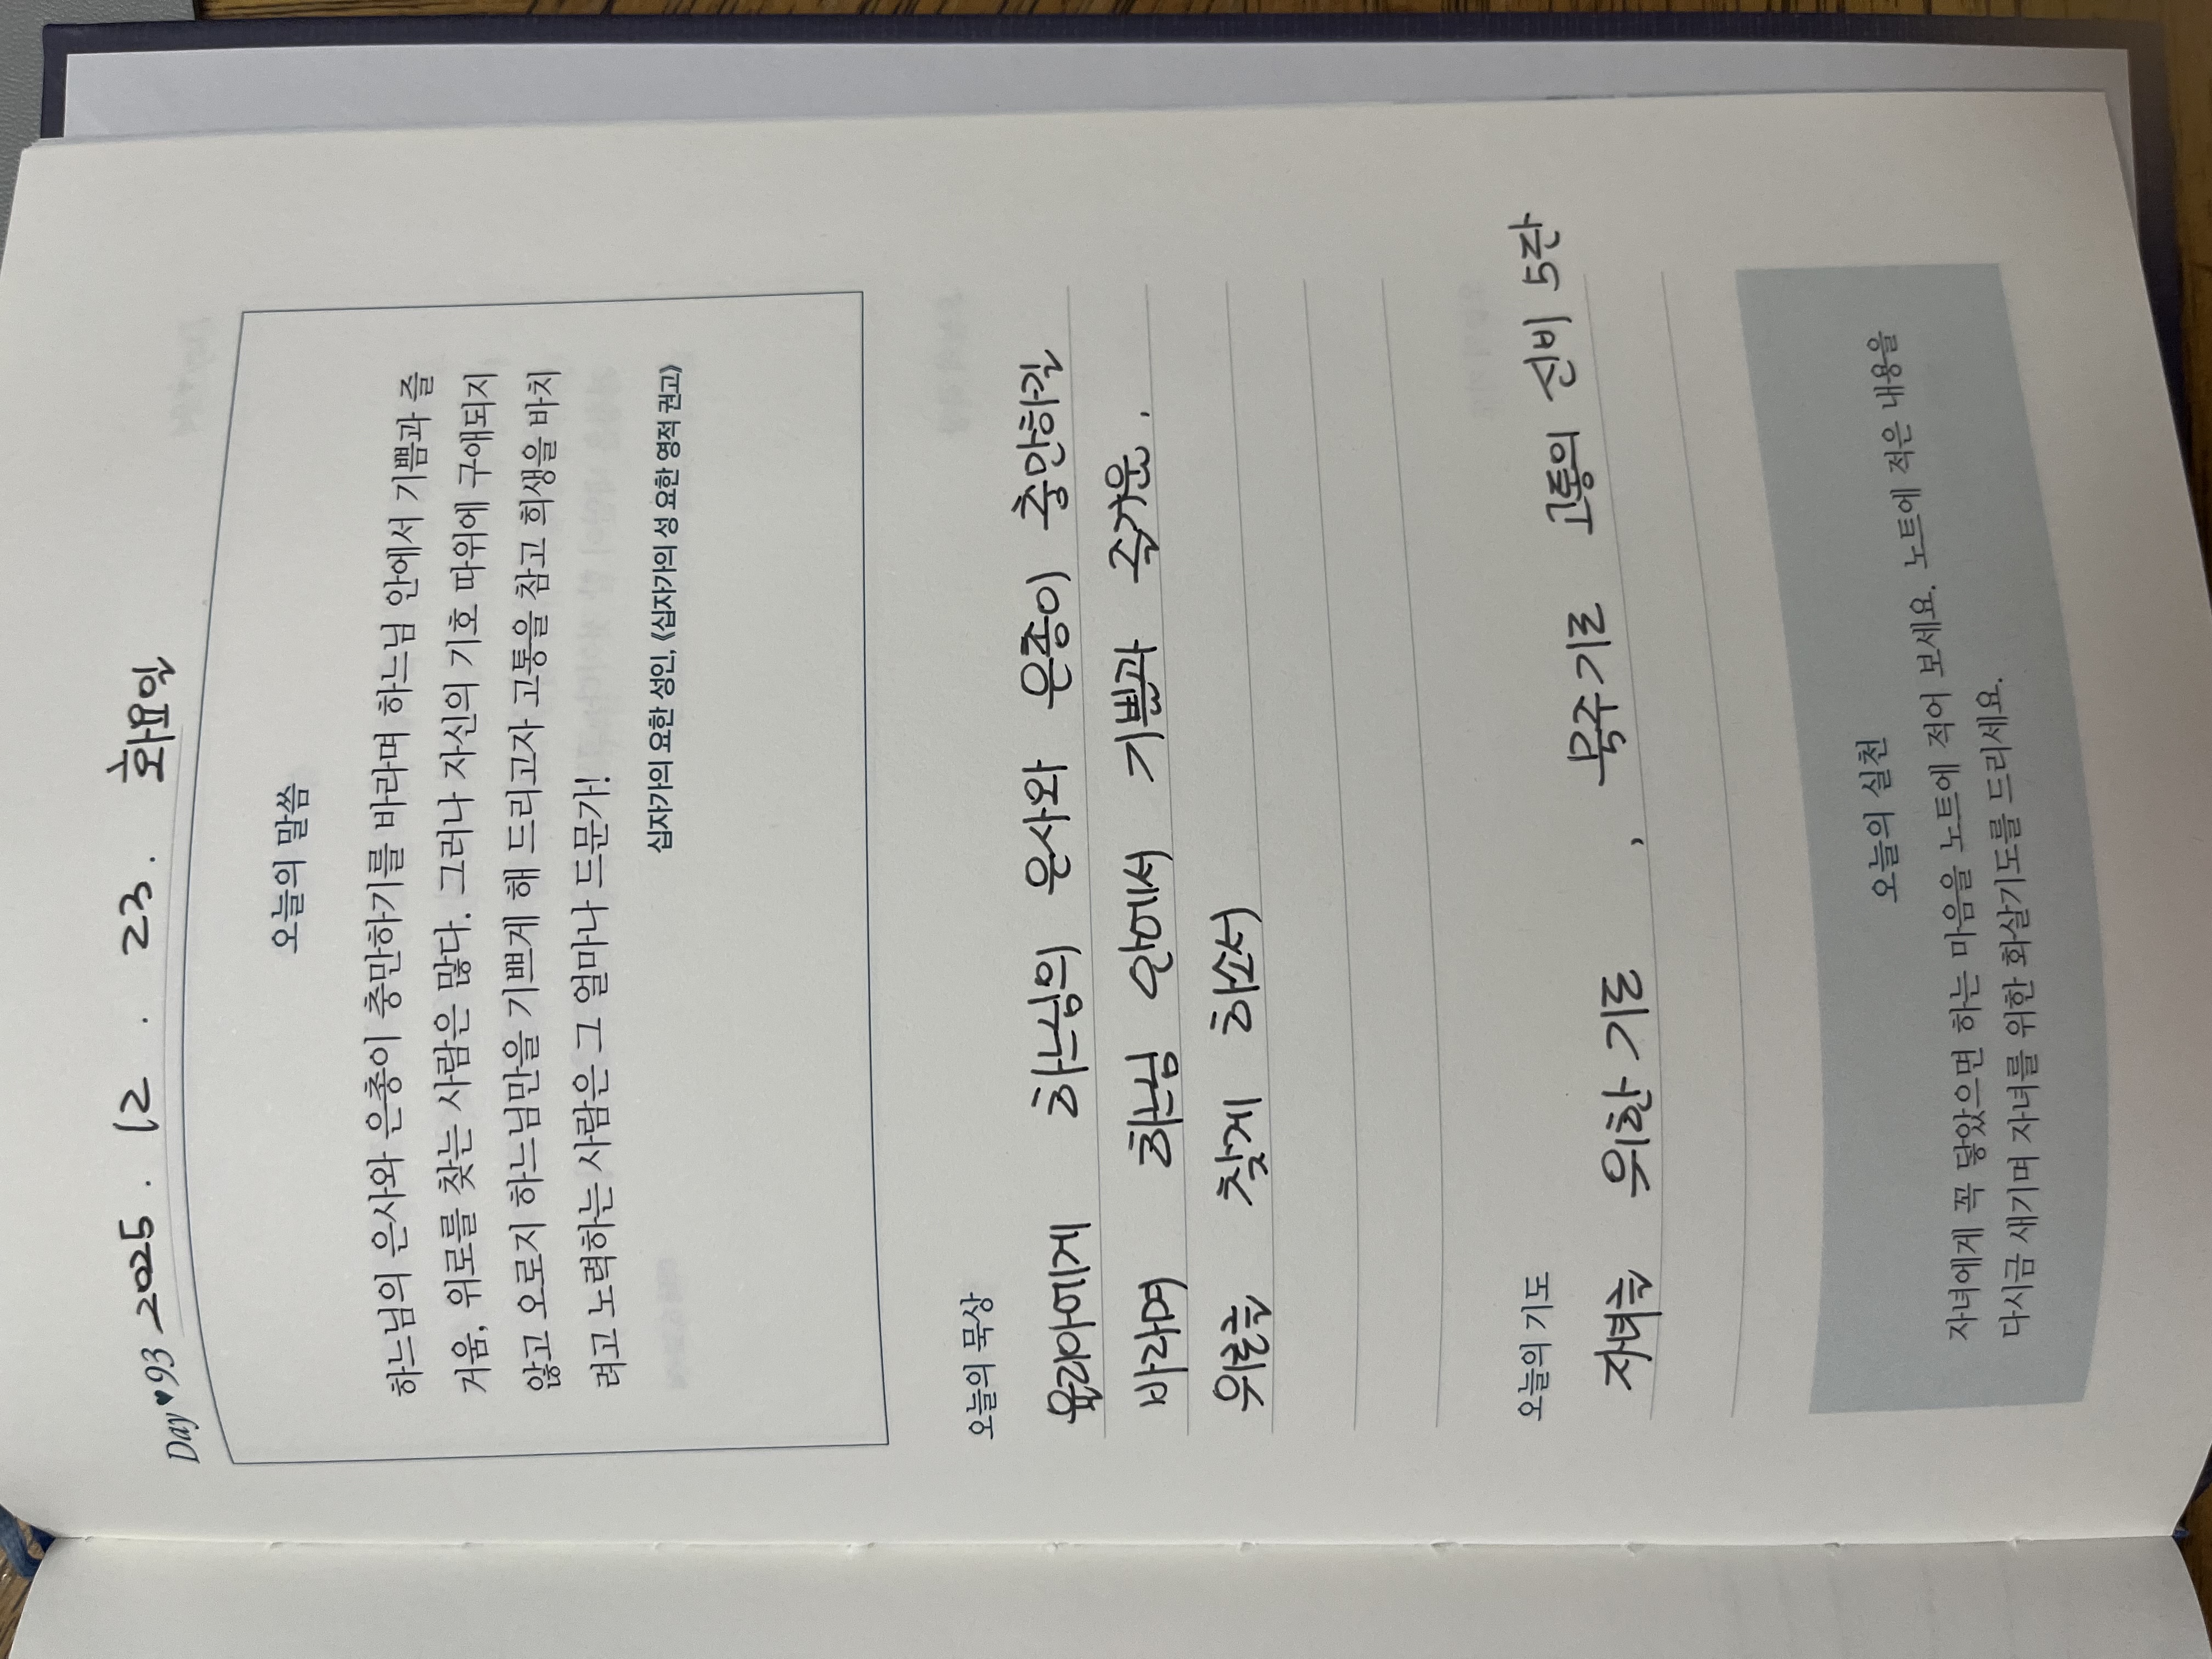 Day♥93 2025. 12. 23. 화요일
오늘의 말씀
하느님의 은사와 은총이 충만하기를 바라며 하느님 안에서 기쁨과 즐
거움, 위로를 찾는 사람은 많다. 그러나 자신의 기호 따위에 구애되지
않고 오로지 하느님만을 기쁘게 해 드리고자 고통을 참고 희생을 바치
려고 노력하는 사람은 그 얼마나 드문가!
십자가의 요한 성인, 《십자가의 성 요한 영적 권고》
오늘의 묵상
하느님의 은사와 은총이 충만하길
바라며 하느님 안에서 기쁨과 즐거운,
위로를 찾게 하소서
오늘의 기도
자녀를 위한 기도, 묵주기도 고통의 신비 5단
오늘의 실천
자녀에게 꼭 닿았으면 하는 마음을 노트에 적어 보세요. 노트에 적은 내용을
다시금 새기며 자녀를 위한 화살기도를 드리세요.